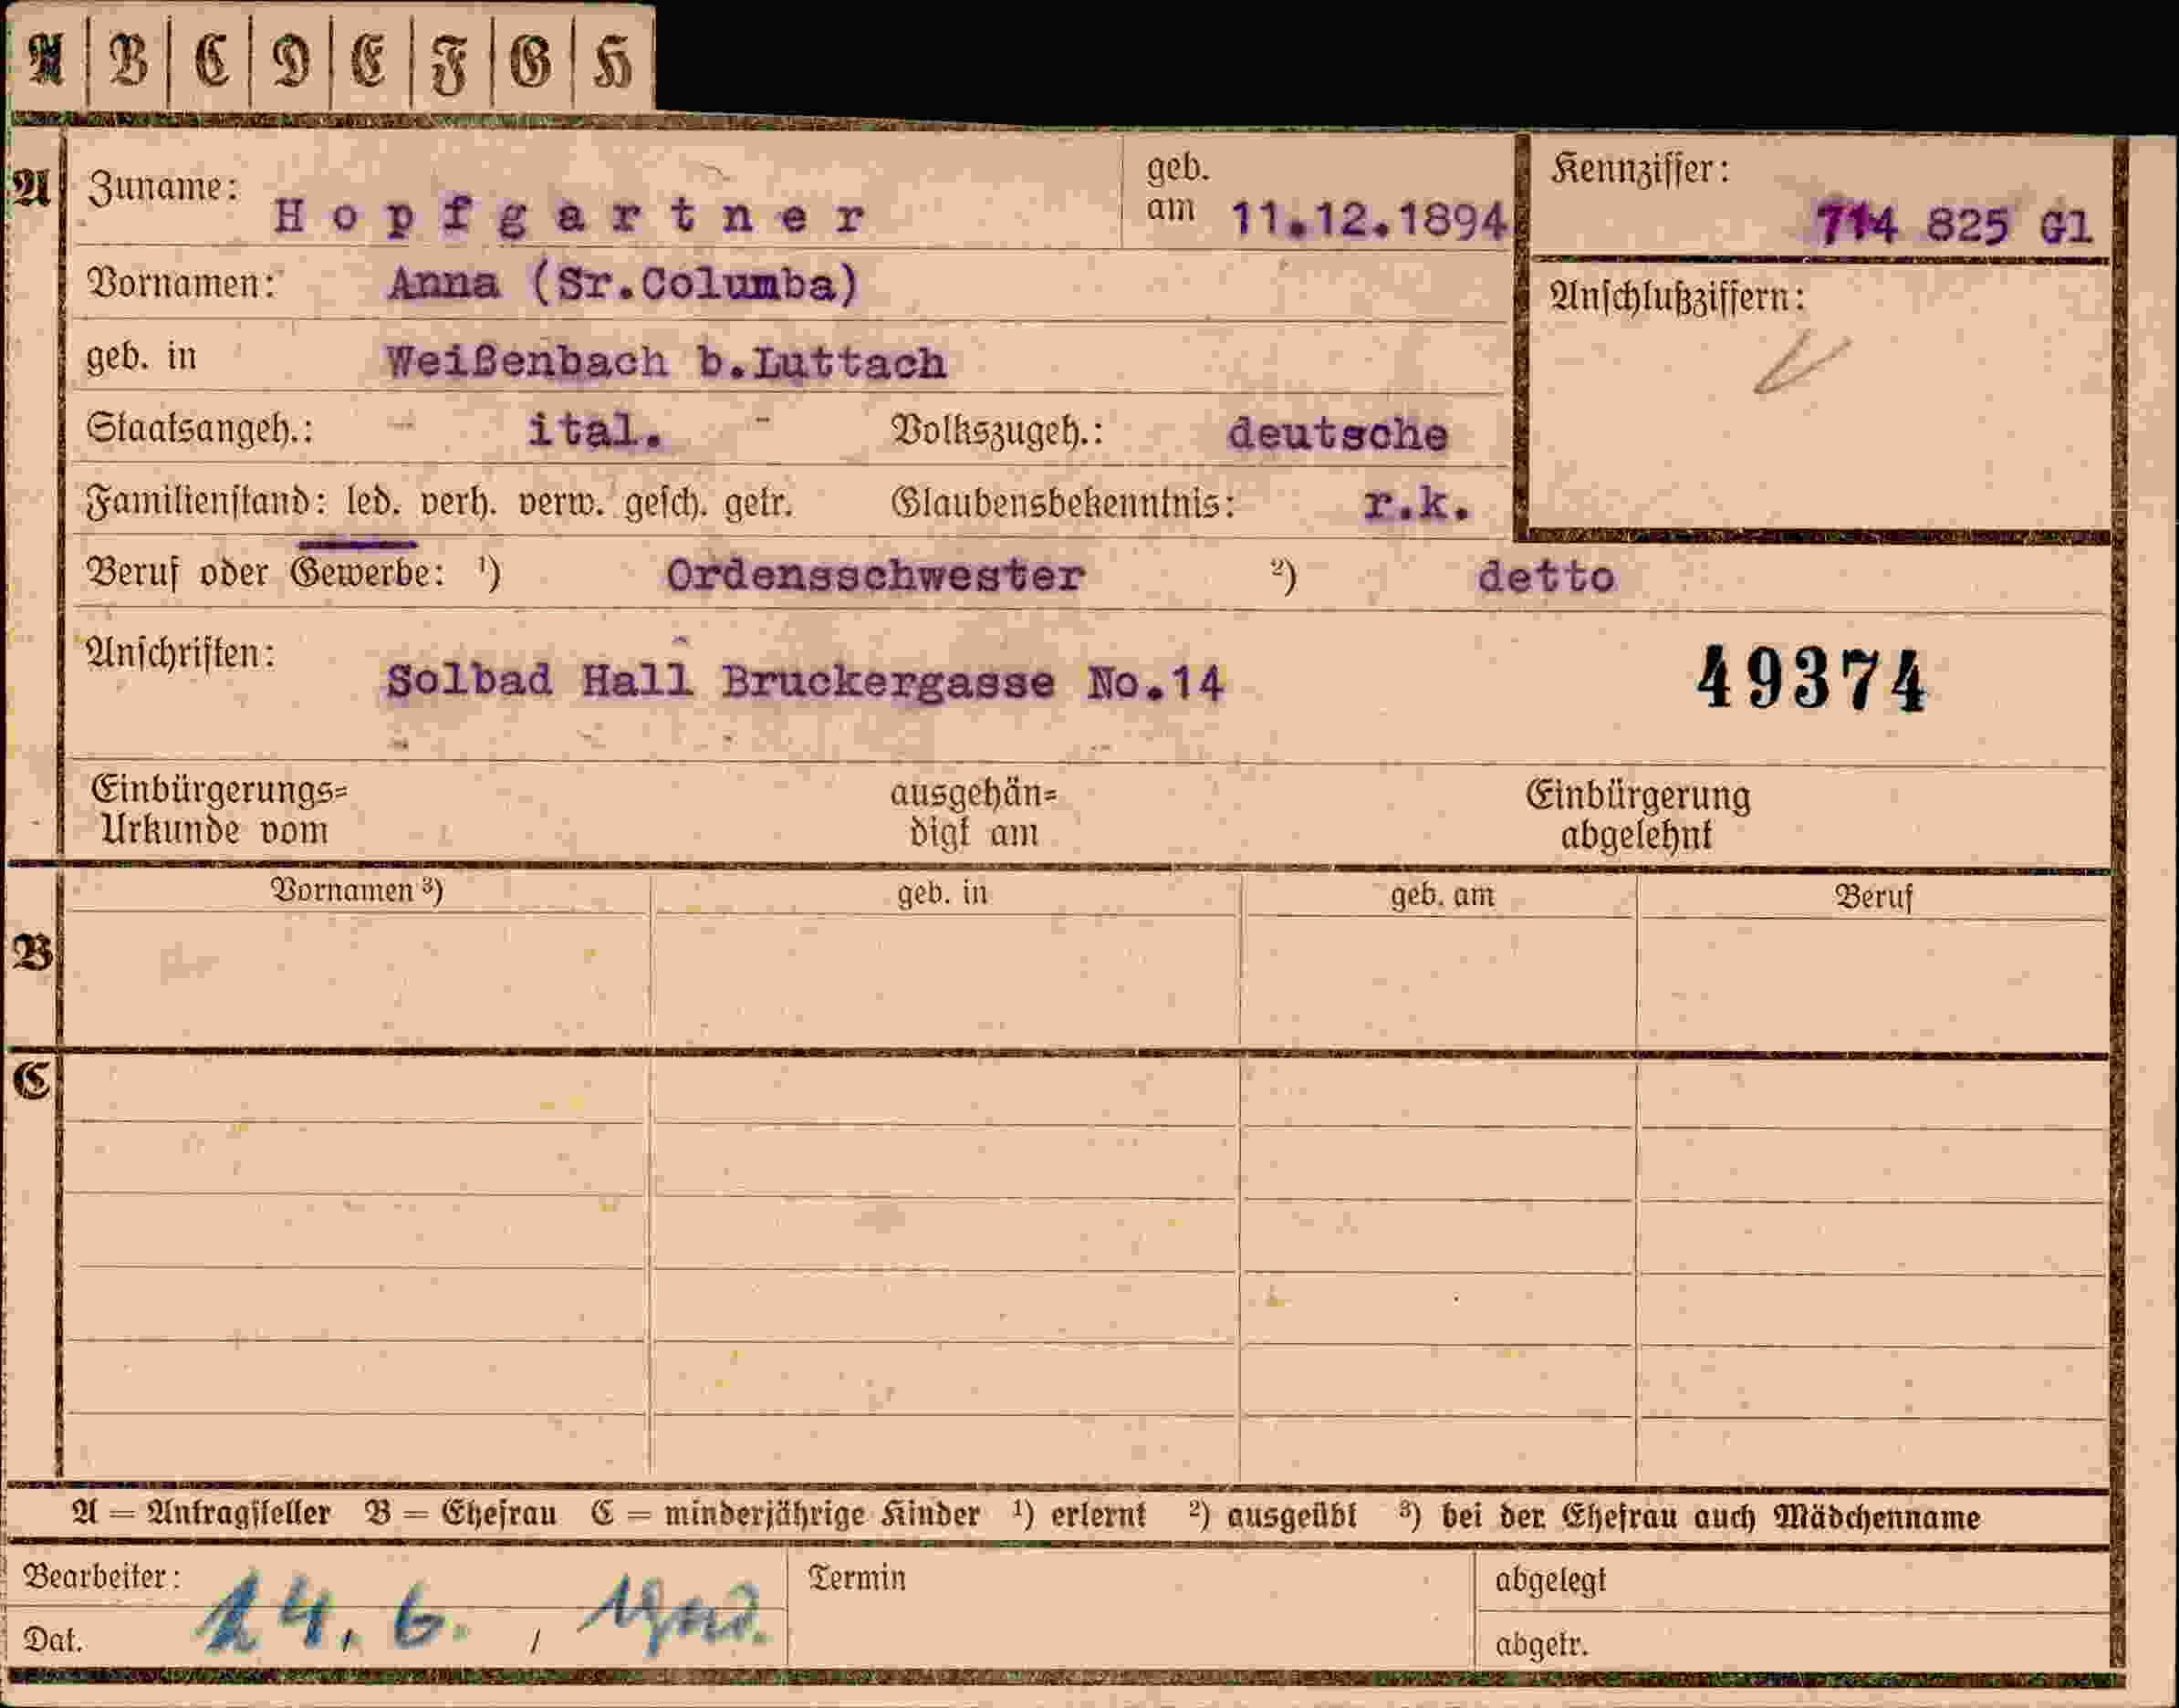 A B C D E F G H
A Zuname: Hopfgartner geb. am 11.12.1894 Kennziffer: 714 825 Gl
Vornamen: Anna (Sr.Columba) Anschlußziffern:
geb. in Weißenbach b.Luttach
Staatsangeh.: ital. Volkszugeh.: deutsche
Familienstand: led. verh. verw. gesch. getr. Glaubensbekenntnis: r.k.
Beruf oder Gewerbe: ¹) Ordensschwester ²) detto
Anschriften: Solbad Hall Bruckergasse No.14 49374
Einbürgerungs= ausgehän= Einbürgerung
Urkunde vom digt am abgelehnt
Vornamen ³) geb. in geb. am Beruf
B
C
A = Antragsteller B = Ehefrau C = minderjährige Kinder ¹) erlernt ²) ausgeübt ³) bei der Ehefrau auch Mädchenname
Bearbeiter: Termin abgelegt
Dat. 24. 6. / abgetr.